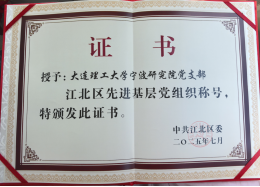 证书
授予：大连理工大学宁波研究院党支部
江北区先进基层党组织称号，
特颁发此证书。
中共江北区委
二〇二五年七月